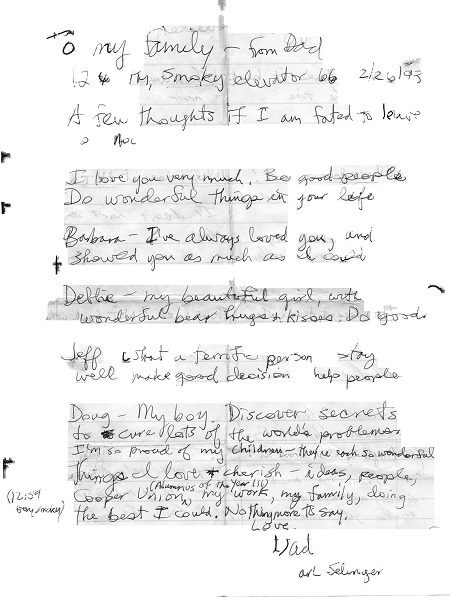 To my family – from Dad
12 in, smoky elevator 66 2/26/93
A few thoughts if I am fated to leave
now
I love you very much. Be good people
Do wonderful things in your life
Barbara – I've always loved you, and
showed you as much as I could
Debbie – my beautiful girl, with
wonderful bear hugs & kisses. Do good
Jeff what a terrific person stay
well make good decision help people
Doug – My boy. Discover secrets
to cure lots of the world's problems
I'm so proud of my children – they're each so wonderful
things I love & cherish – ideas, people,
Cooper Union (Alumnus of the Year !!!), my work, my family, doing
(12:59 very smoky)
the best I could. Nothing more to say.
Love.
Dad
Art Selinger